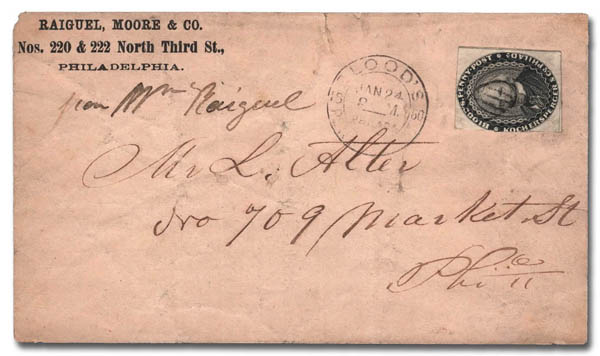 RAIGUEL, MOORE & CO.
Nos. 220 & 222 North Third St.,
PHILADELPHIA.
BLOOD'S
JAN 24
BLOOD'S PENNY-POST PHILAD'A
KOCHERSPERGER & CO.
from Mr Raiguel
Mr L. Alter
No 709 Market St
Phila